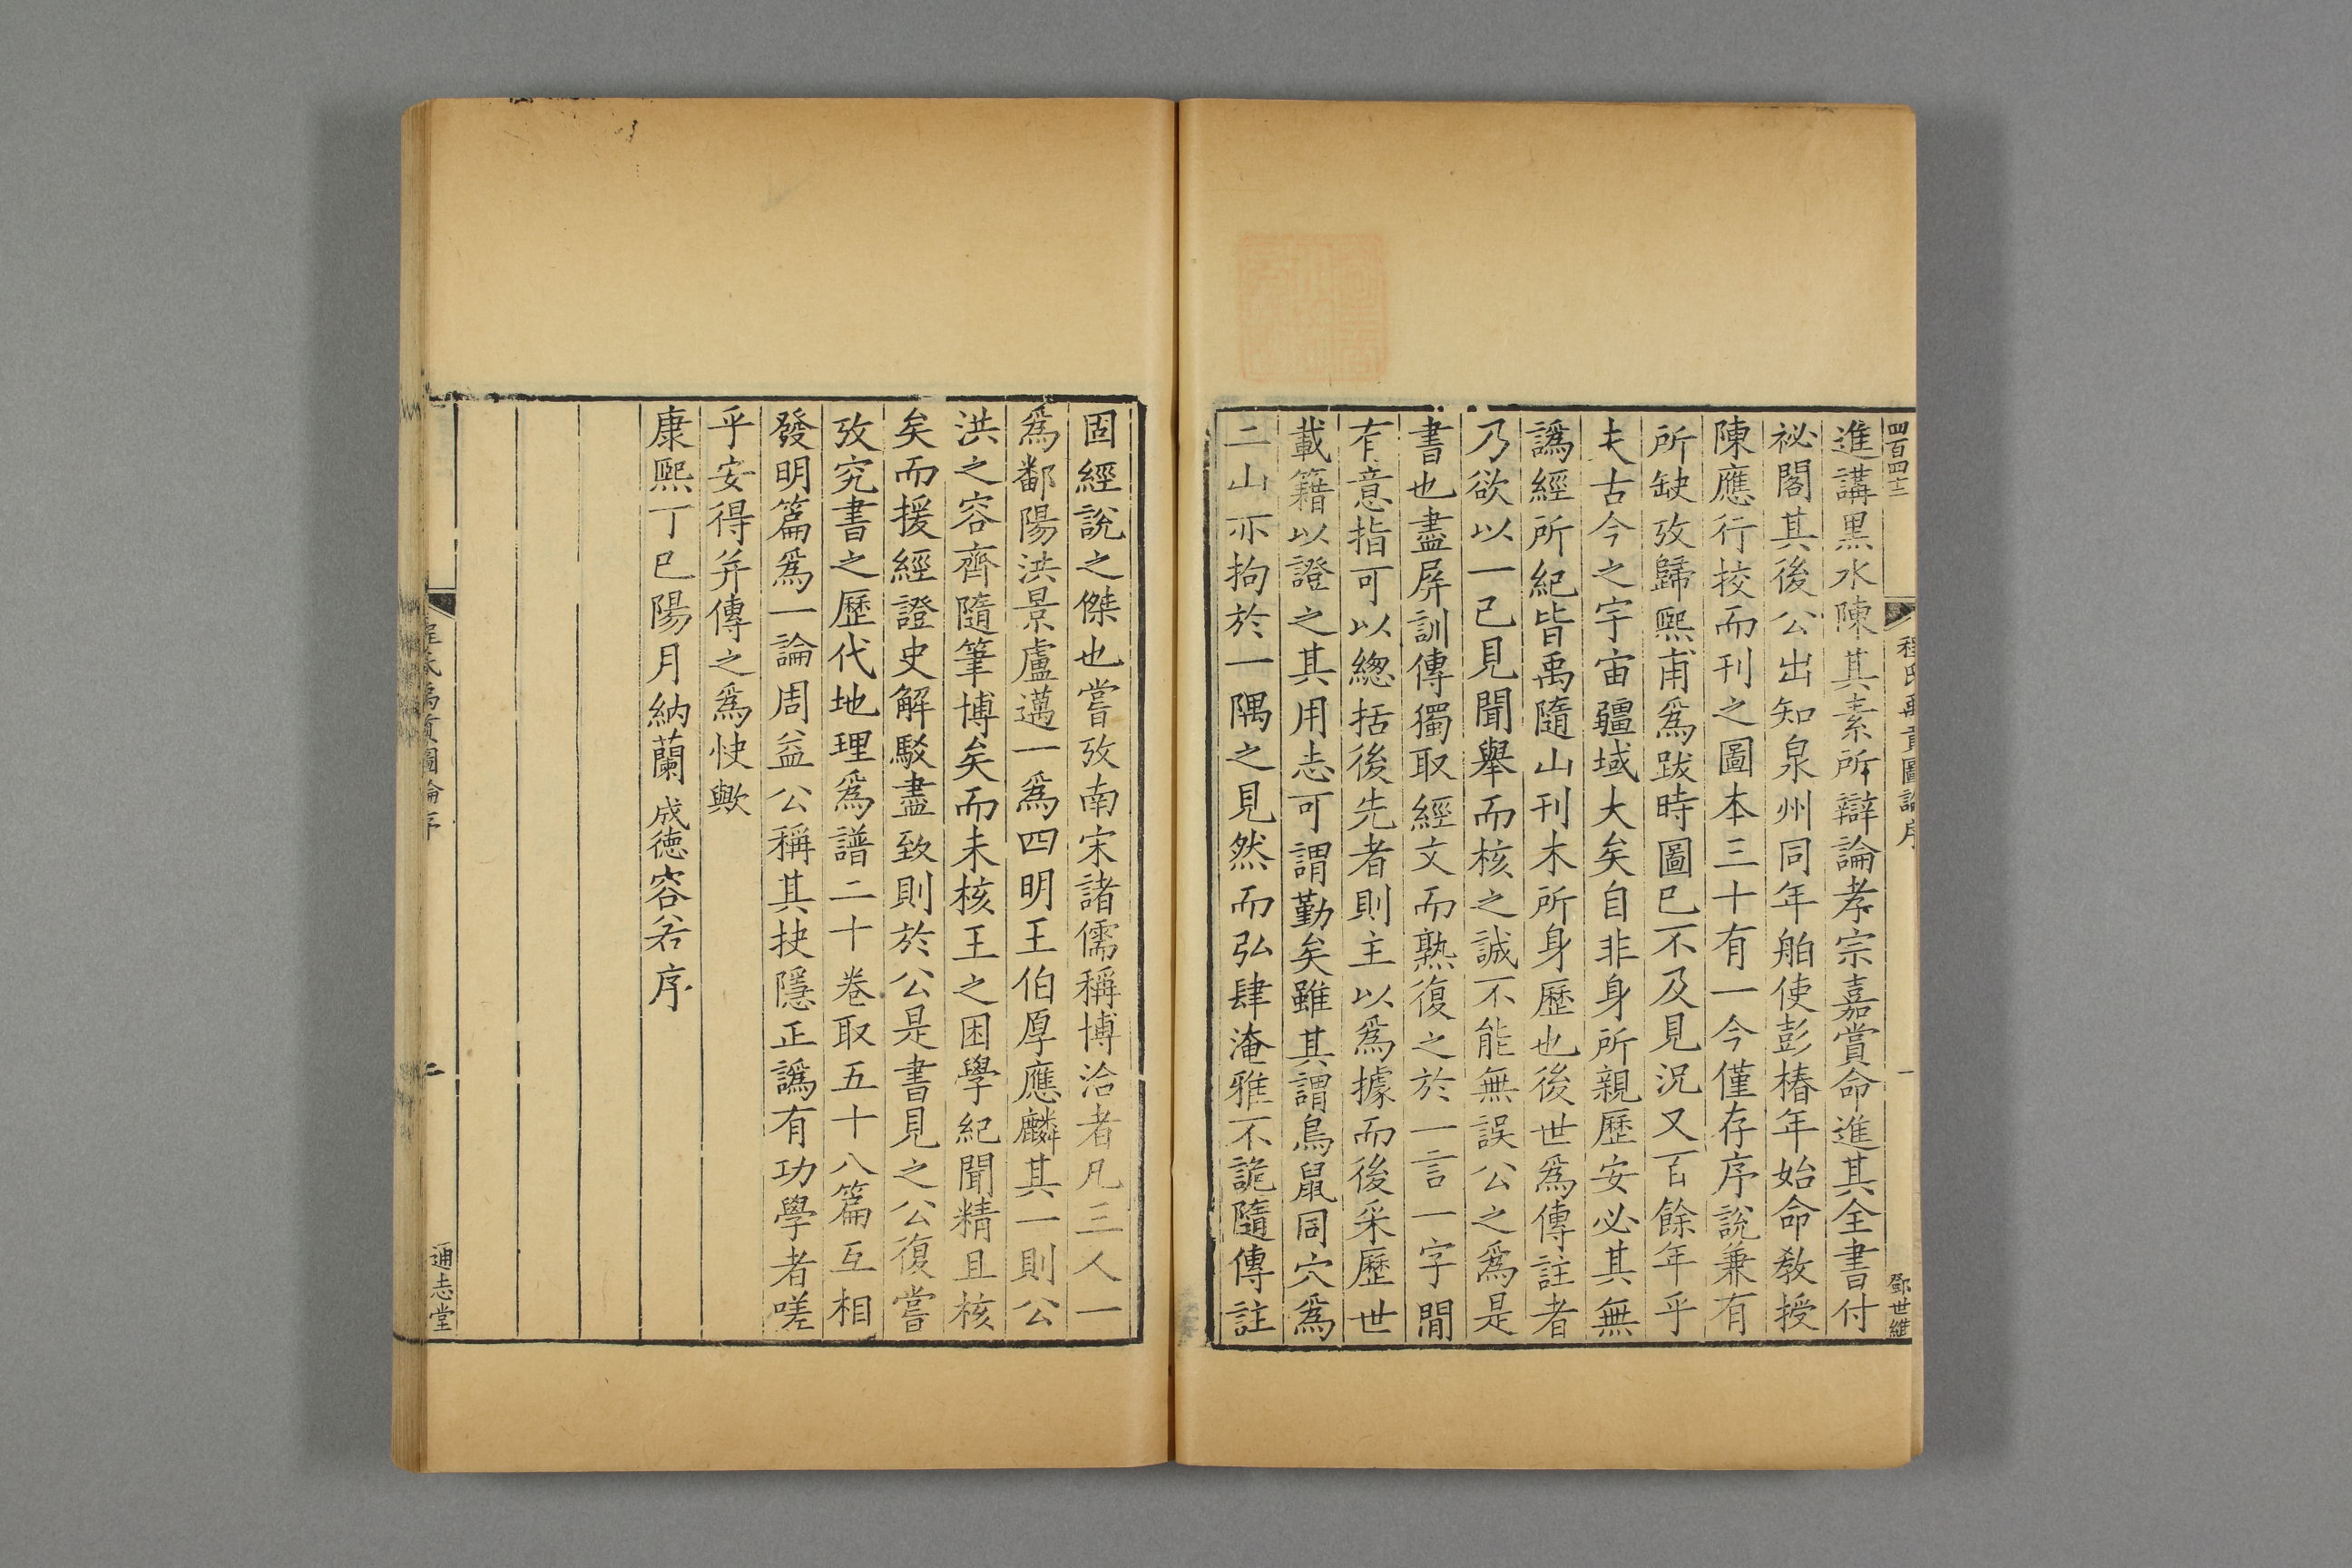 四百四十三
程氏禹貢圖論序
一
鄧世維
進講黑水陳其素所辯論孝宗嘉賞命進其全書付
祕閣其後公出知泉州同年舶使彭椿年始命敎授
陳應行挍而刊之圖本三十有一今僅存序說兼有
所缺攷歸熙甫爲跋時圖已不及見況又百餘年乎
夫古今之宇宙疆域大矣自非身所親歷安必其無
譌經所紀皆禹隨山刊木所身歷也後世爲傳註者
乃欲以一己見聞舉而核之誠不能無誤公之爲是
書也盡屏訓傳獨取經文而熟復之於一言一字間
有意指可以緫括後先者則主以爲據而後采歷世
載籍以證之其用志可謂勤矣雖其謂鳥鼠同穴爲
二山亦拘於一隅之見然而弘肆淹雅不詭隨傳註
固經說之傑也嘗攷南宋諸儒稱博洽者凡三人一
爲鄱陽洪景盧邁一爲四明王伯厚應麟其一則公
洪之容齊隨筆博矣而未核王之困學紀聞精且核
矣而援經證史解駁盡致則於公是書見之公復嘗
攷究書之歷代地理爲譜二十卷取五十八篇互相
發明篇爲一論周益公稱其抉隱正譌有功學者嗟
乎安得并傳之爲快歟
康熙丁巳陽月納蘭成德容若序
程氏禹貢圖論序
二
通志堂